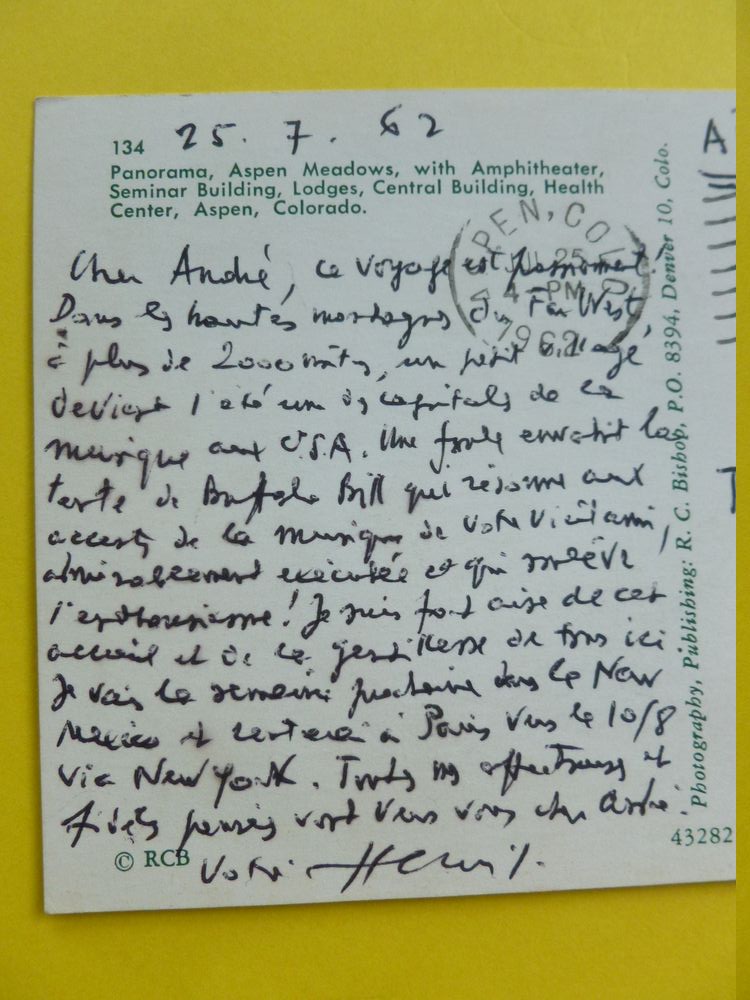 134 25. 7. 62
Panorama, Aspen Meadows, with Amphitheater,
Seminar Building, Lodges, Central Building, Health
Center, Aspen, Colorado.
PEN, COL
JUL 25
4 - PM
1962
Cher André, ce voyage est passionnant!
Dans les hautes montagnes du Far West,
à plus de 2000 mètres, un petit village
devient l'été une des capitales de la
musique aux USA. Une foule envahit la
tente de Buffalo Bill qui résonne aux
accents de la musique de votre vieil ami,
admirablement exécutée et qui soulève
l'enthousiasme! Je suis fort aise de cet
accueil et de la gentillesse de tous ici
Je vais la semaine prochaine dans le New
Mexico et rentrerai à Paris vers le 10/8
via New York. Toutes mes affectueuses et
fidèles pensées vont vers vous cher André.
Votre
© RCB
Photography, Publishing: R. C. Bishop, P.O. 8394, Denver 10, Colo.
43282